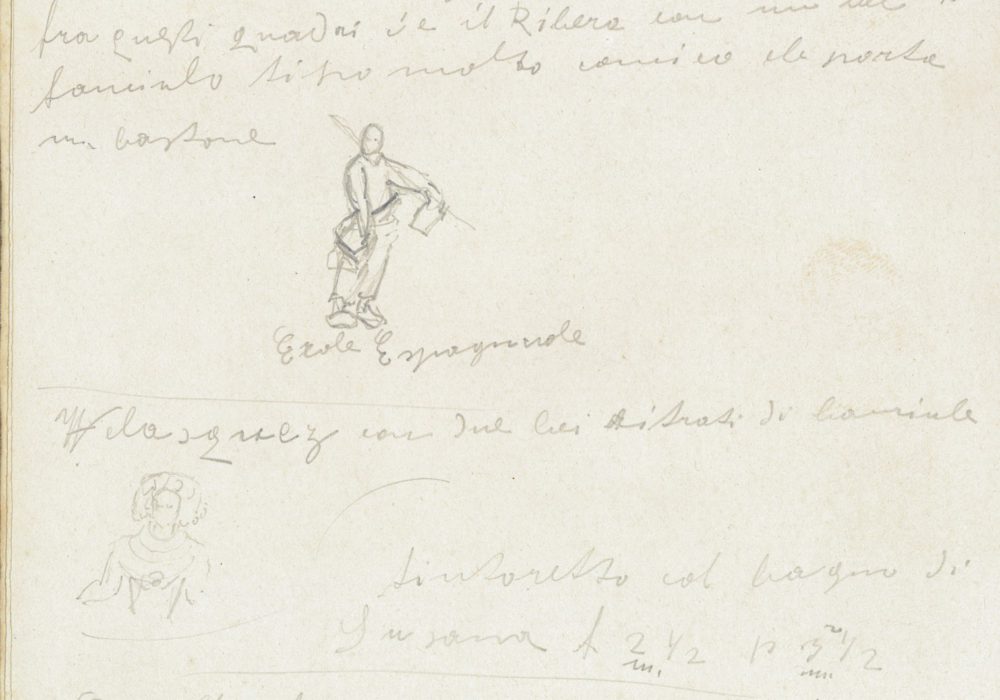 fra questi quadri c'è il Ribera con un bel
fanciullo tipo molto comico che porta
un bastone
Ecole Espagnuole
Velasquez con due bei ritrati di fanciule
tintoretto col bagno di
Susana A 2 1/2 p 3 1/2
m. m.